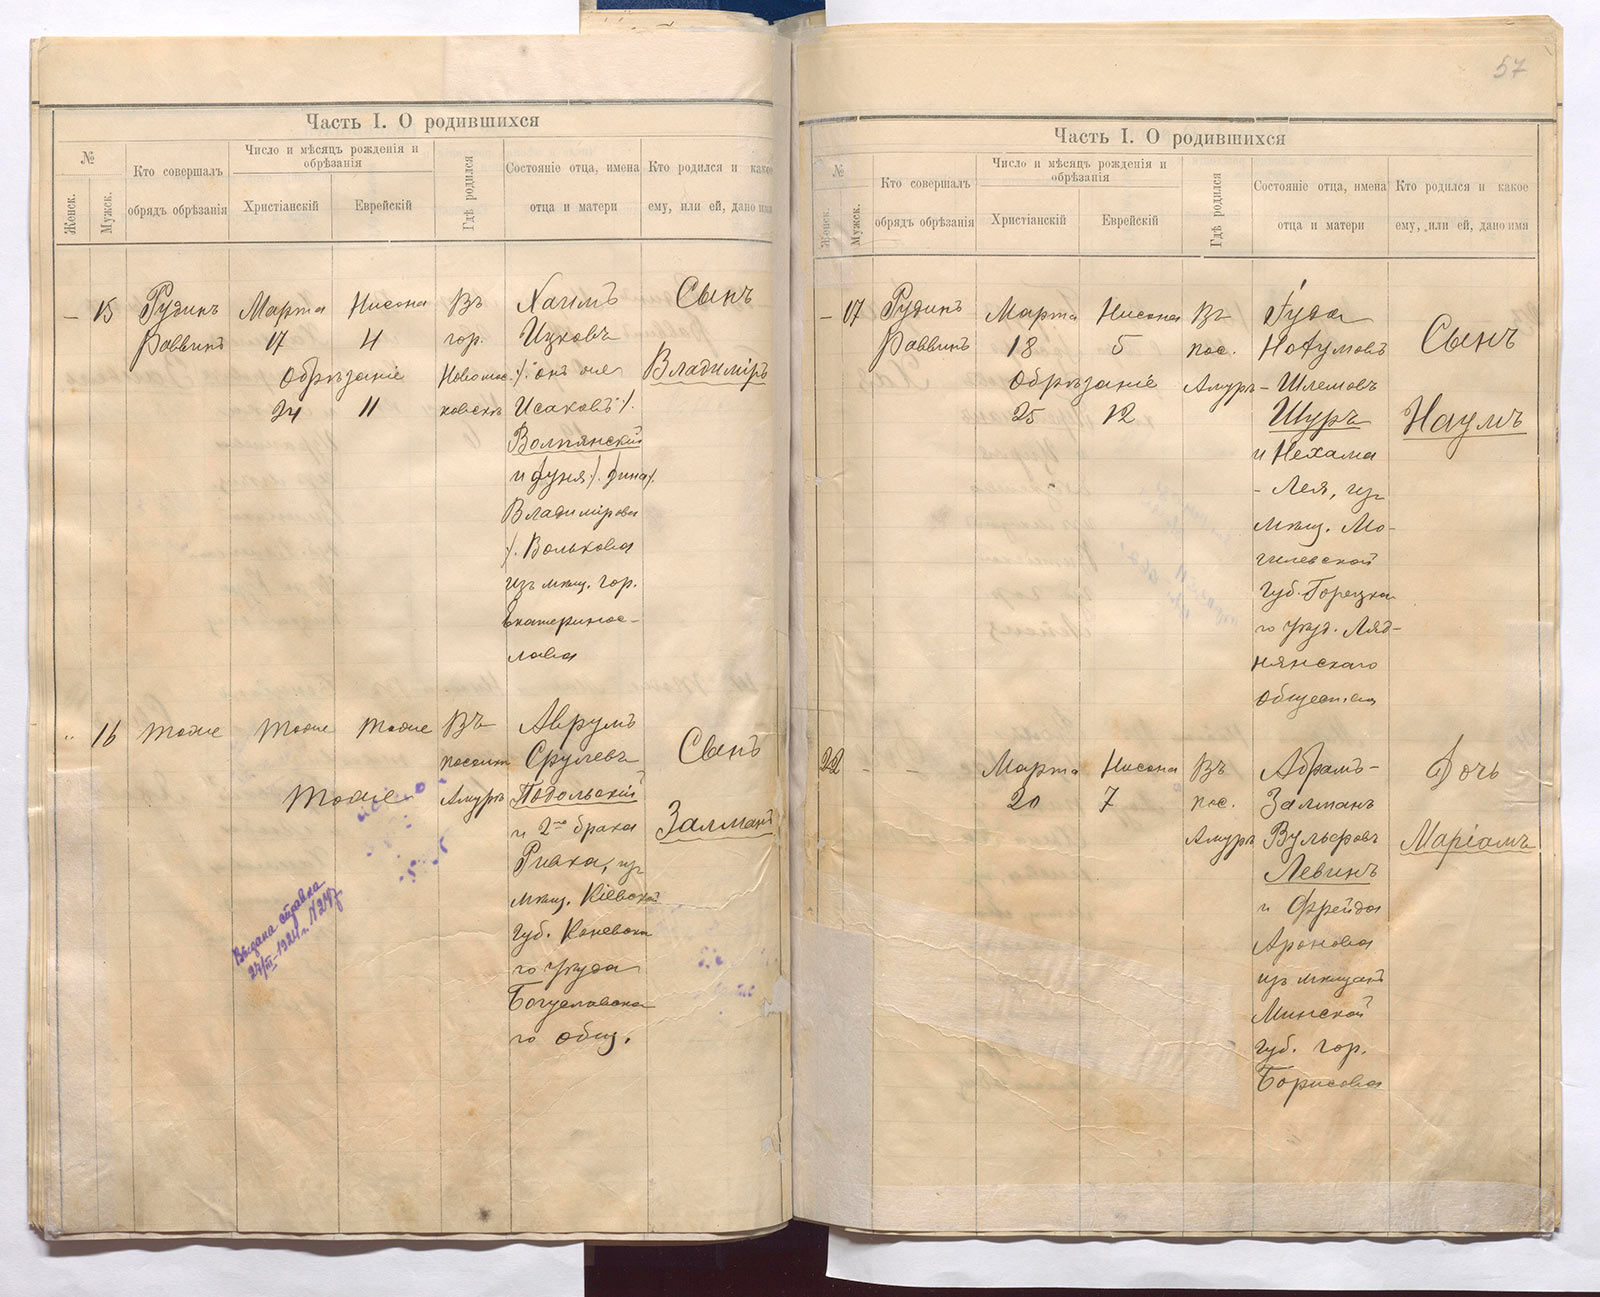 Часть I. О родившихся
№
Женск.
Мужск.
Кто совершалъ
обрядъ обрѣзанія
Число и мѣсяцъ рожденія и
обрѣзанія
Христіанскій
Еврейскій
Гдѣ родился
Состояніе отца, имена
отца и матери
Кто родился и какое
ему, или ей, дано имя
– 15
Рудинъ
Раввинъ
Марта
17
Нисона
4
Обрѣзаніе
24 11
Въ
гор.
Новомос
ковскъ
Хаимъ
Ицковъ
/. онъ же
Исаковъ /.
Волпянскій
и Дуня /. Дина /.
Владимірова
/. Волькова
изъ мѣщ. гор.
Екатеринос-
лава
Сынъ
Владиміръ
" 16
тоже
тоже
тоже
тоже
Въ
поселкѣ
Амуръ
Аврумъ
Срулевъ
Подольскій
и 2го брака
Ривка, из
мѣщ. Кіевской
губ. Каневска
го уѣзда
Богуславска
го общ.
Сынъ
Залманъ
Выдана справка
24/III-1924 г. N 247
57
Часть I. О родившихся
№
Женск.
Мужск.
Кто совершалъ
обрядъ обрѣзанія
Число и мѣсяцъ рожденія и
обрѣзанія
Христіанскій
Еврейскій
Гдѣ родился
Состояніе отца, имена
отца и матери
Кто родился и какое
ему, или ей, дано имя
– 17
Рудинъ
Раввинъ
Марта
18
Нисона
5
Обрѣзаніе
25 12
Въ
пос.
Амуръ
Іуда
Нохумовъ
– Шлемовъ
Шуръ
и Нехама
– Лея, из
мѣщ. Мо-
гилевской
губ. Горецка
го уѣзд. Ляд-
нянскаго
общества
Сынъ
Наумъ
22 – –
Марта
20
Нисона
7
Въ
пос.
Амуръ
Абрамъ-
Залманъ
Вульфовъ
Левинъ
и Фрейда
Аронова
изъ мѣщанъ
Минской
губ. гор.
Борисова
Дочь
Маріамъ